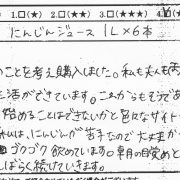 1.□(★) 2.□(★★) 3.□(★★★) 4.
にんじんジュース 1L×6本
のことを考え購入しました。私も夫も両
生活ができています。これからもそうであ
始めることはできないかと色々なサイト
みは、にんじんが苦手なので大丈夫か
ゴクゴク飲めています。朝の目覚めと
しばらく続けていきます。